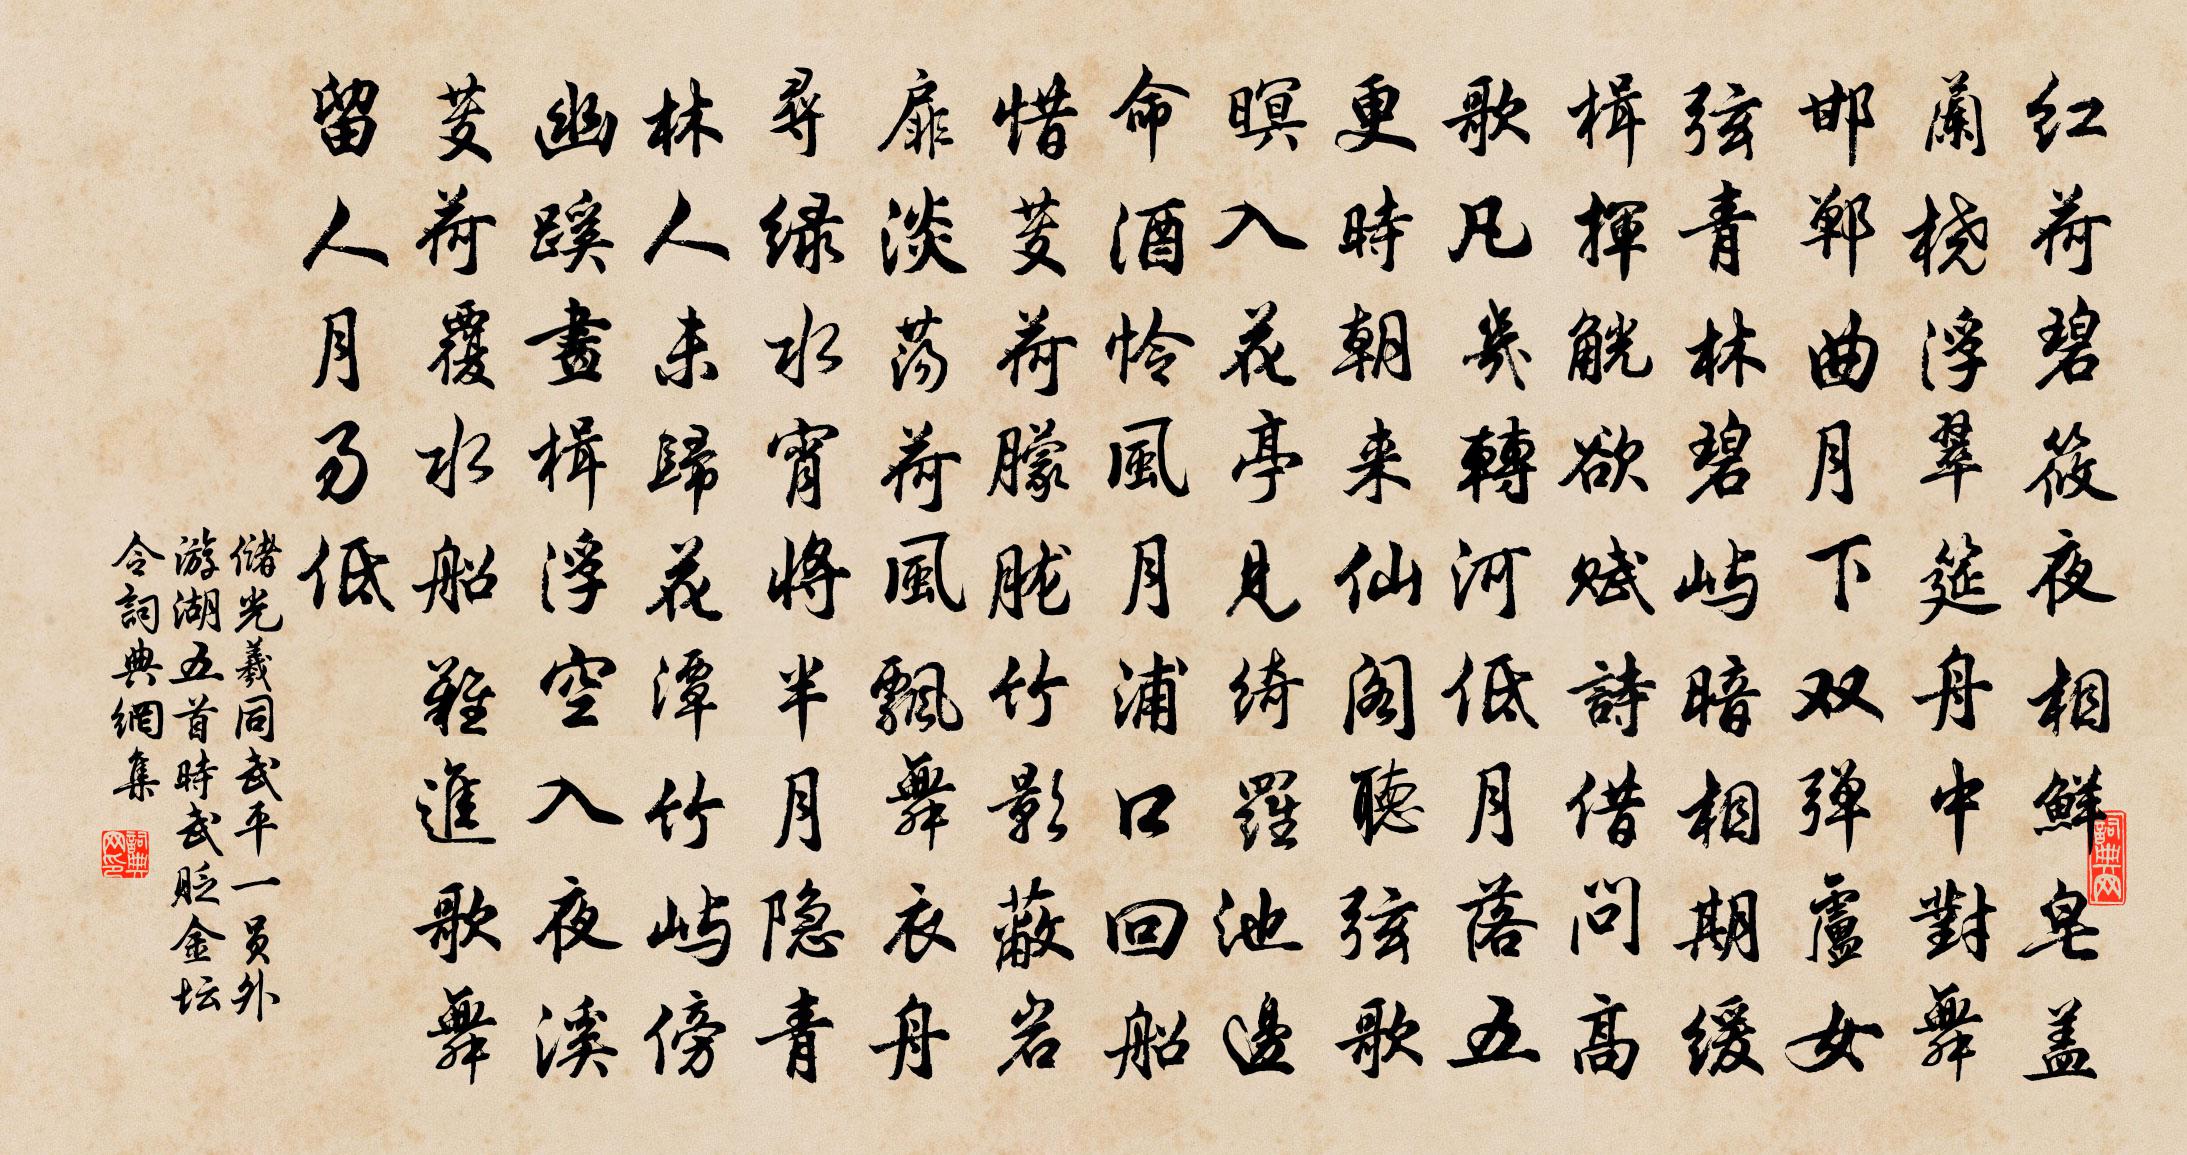 红荷碧筱夜相鲜皂盖
蘭桡浮翠筵舟中對舞
邯鄲曲月下双弹盧女
弦青林碧屿暗相期缓
楫揮觥欲赋詩借问高
歌凡幾轉河低月落五
更時朝来仙阁聽弦歌
暝入花亭見绮羅池邊
命酒怜風月浦口回船
惜芰荷朦胧竹影蔽岩
扉淡荡荷風飄舞衣舟
尋绿水宵将半月隐青
林人未歸花潭竹屿傍
幽蹊畫楫浮空入夜溪
芰荷覆水船難進歌舞
留人月易低
储光羲同武平一員外
游湖五首時武贬金坛
令詞典網集
詞典网
詞典网印